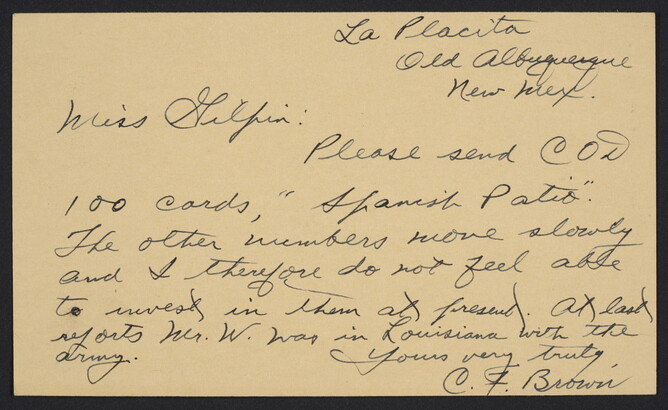 La Placita
Old Albuquerque
New Mex.
Miss Gilpin:
Please send COD
100 cards, "Spanish Patio".
The other numbers move slowly
and I therefore do not feel able
to invest in them at present. At last
reports Mr. W. was in Louisiana with the
army. Yours very truly,
C. F. Brown